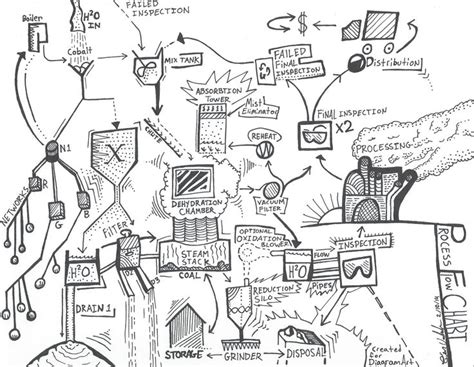 Boiler
H²O
IN
Cobalt
FAILED
INSPECTION
MIX TANK
FAILED
FINAL
INSPECTION
$
Distribution
ABSORBTION
TOWER
Mist
Eliminator
FINAL INSPECTION
X2
REHEAT
PROCESSING
CHUTE
N1
X
R
G
B
NETWORKS
DEHYDRATION
CHAMBER
VACUUM
FILTER
FILTER
STEAM
STACK
COAL
OPTIONAL
OXIDATION
INSPECTION
H²O
H²O
FLOW
Pipes
DRAIN 1
D3
REDUCTION
SILO
STORAGE
GRINDER
DISPOSAL
PROCESS FLOW
CHART
created for
DiagramArt